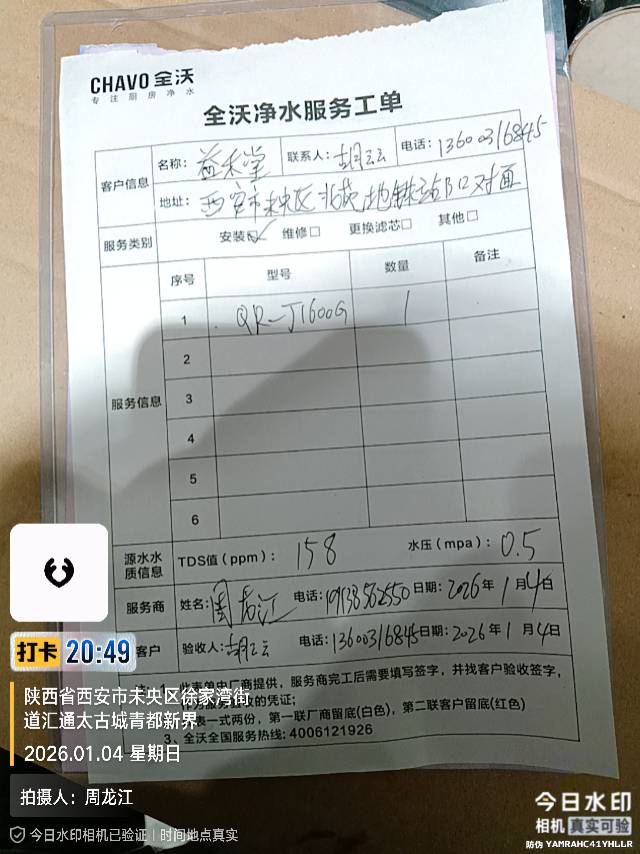 CHAVO 全沃
专注厨房净水
全沃净水服务工单
客户信息
名称：益禾堂 联系人：胡云云 电话：13600316845
地址：西安市未央区北苑地铁站B口对面
服务类别 安装☑ 维修□ 更换滤芯□ 其他□
服务信息
序号 型号 数量 备注
1 QR-J1600G 1
2
3
4
5
6
源水水质信息 TDS值（ppm）： 158 水压（mpa）： 0.5
服务商 姓名：周龙江 电话：19138562550 日期：2026年1月4日
客户 验收人：胡云云 电话：13600316845 日期：2026年1月4日
此表单由厂商提供，服务商完工后需要填写签字，并找客户验收签字，
收的凭证；
表一式两份，第一联厂商留底(白色)，第二联客户留底(红色)
3、全沃全国服务热线: 4006121926
打卡 20:49
陕西省西安市未央区徐家湾街
道汇通太古城青都新界
2026.01.04 星期日
拍摄人：周龙江
今日水印相机已验证 | 时间地点真实
今日水印
相机 真实可验
防伪 YAMRAHC41YHLLR